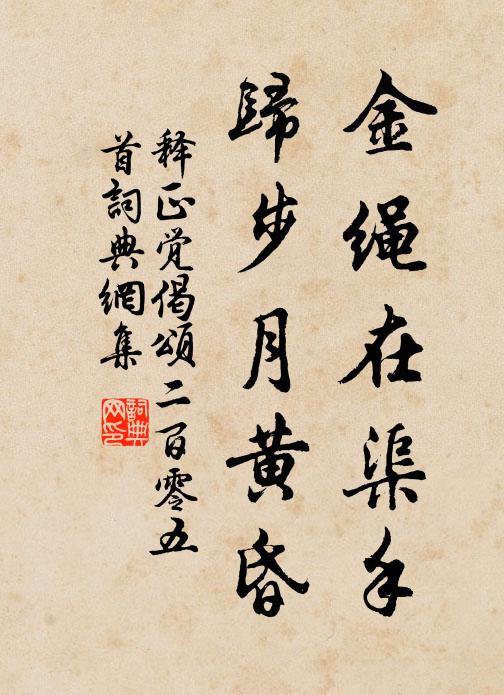 金绳在渠手
歸步月黄昏
释正觉偈頌二百零五
首詞典網集
詞典网印